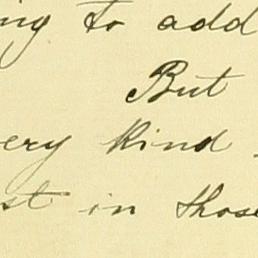 ing to add
But
ery kind
st in those